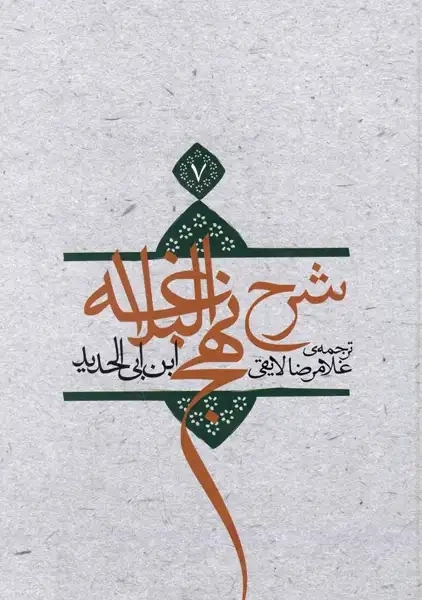 ۷
شرح نهج البلاغه
ابن ابی الحدید
ترجمه‌ی
غلامرضا لایقی